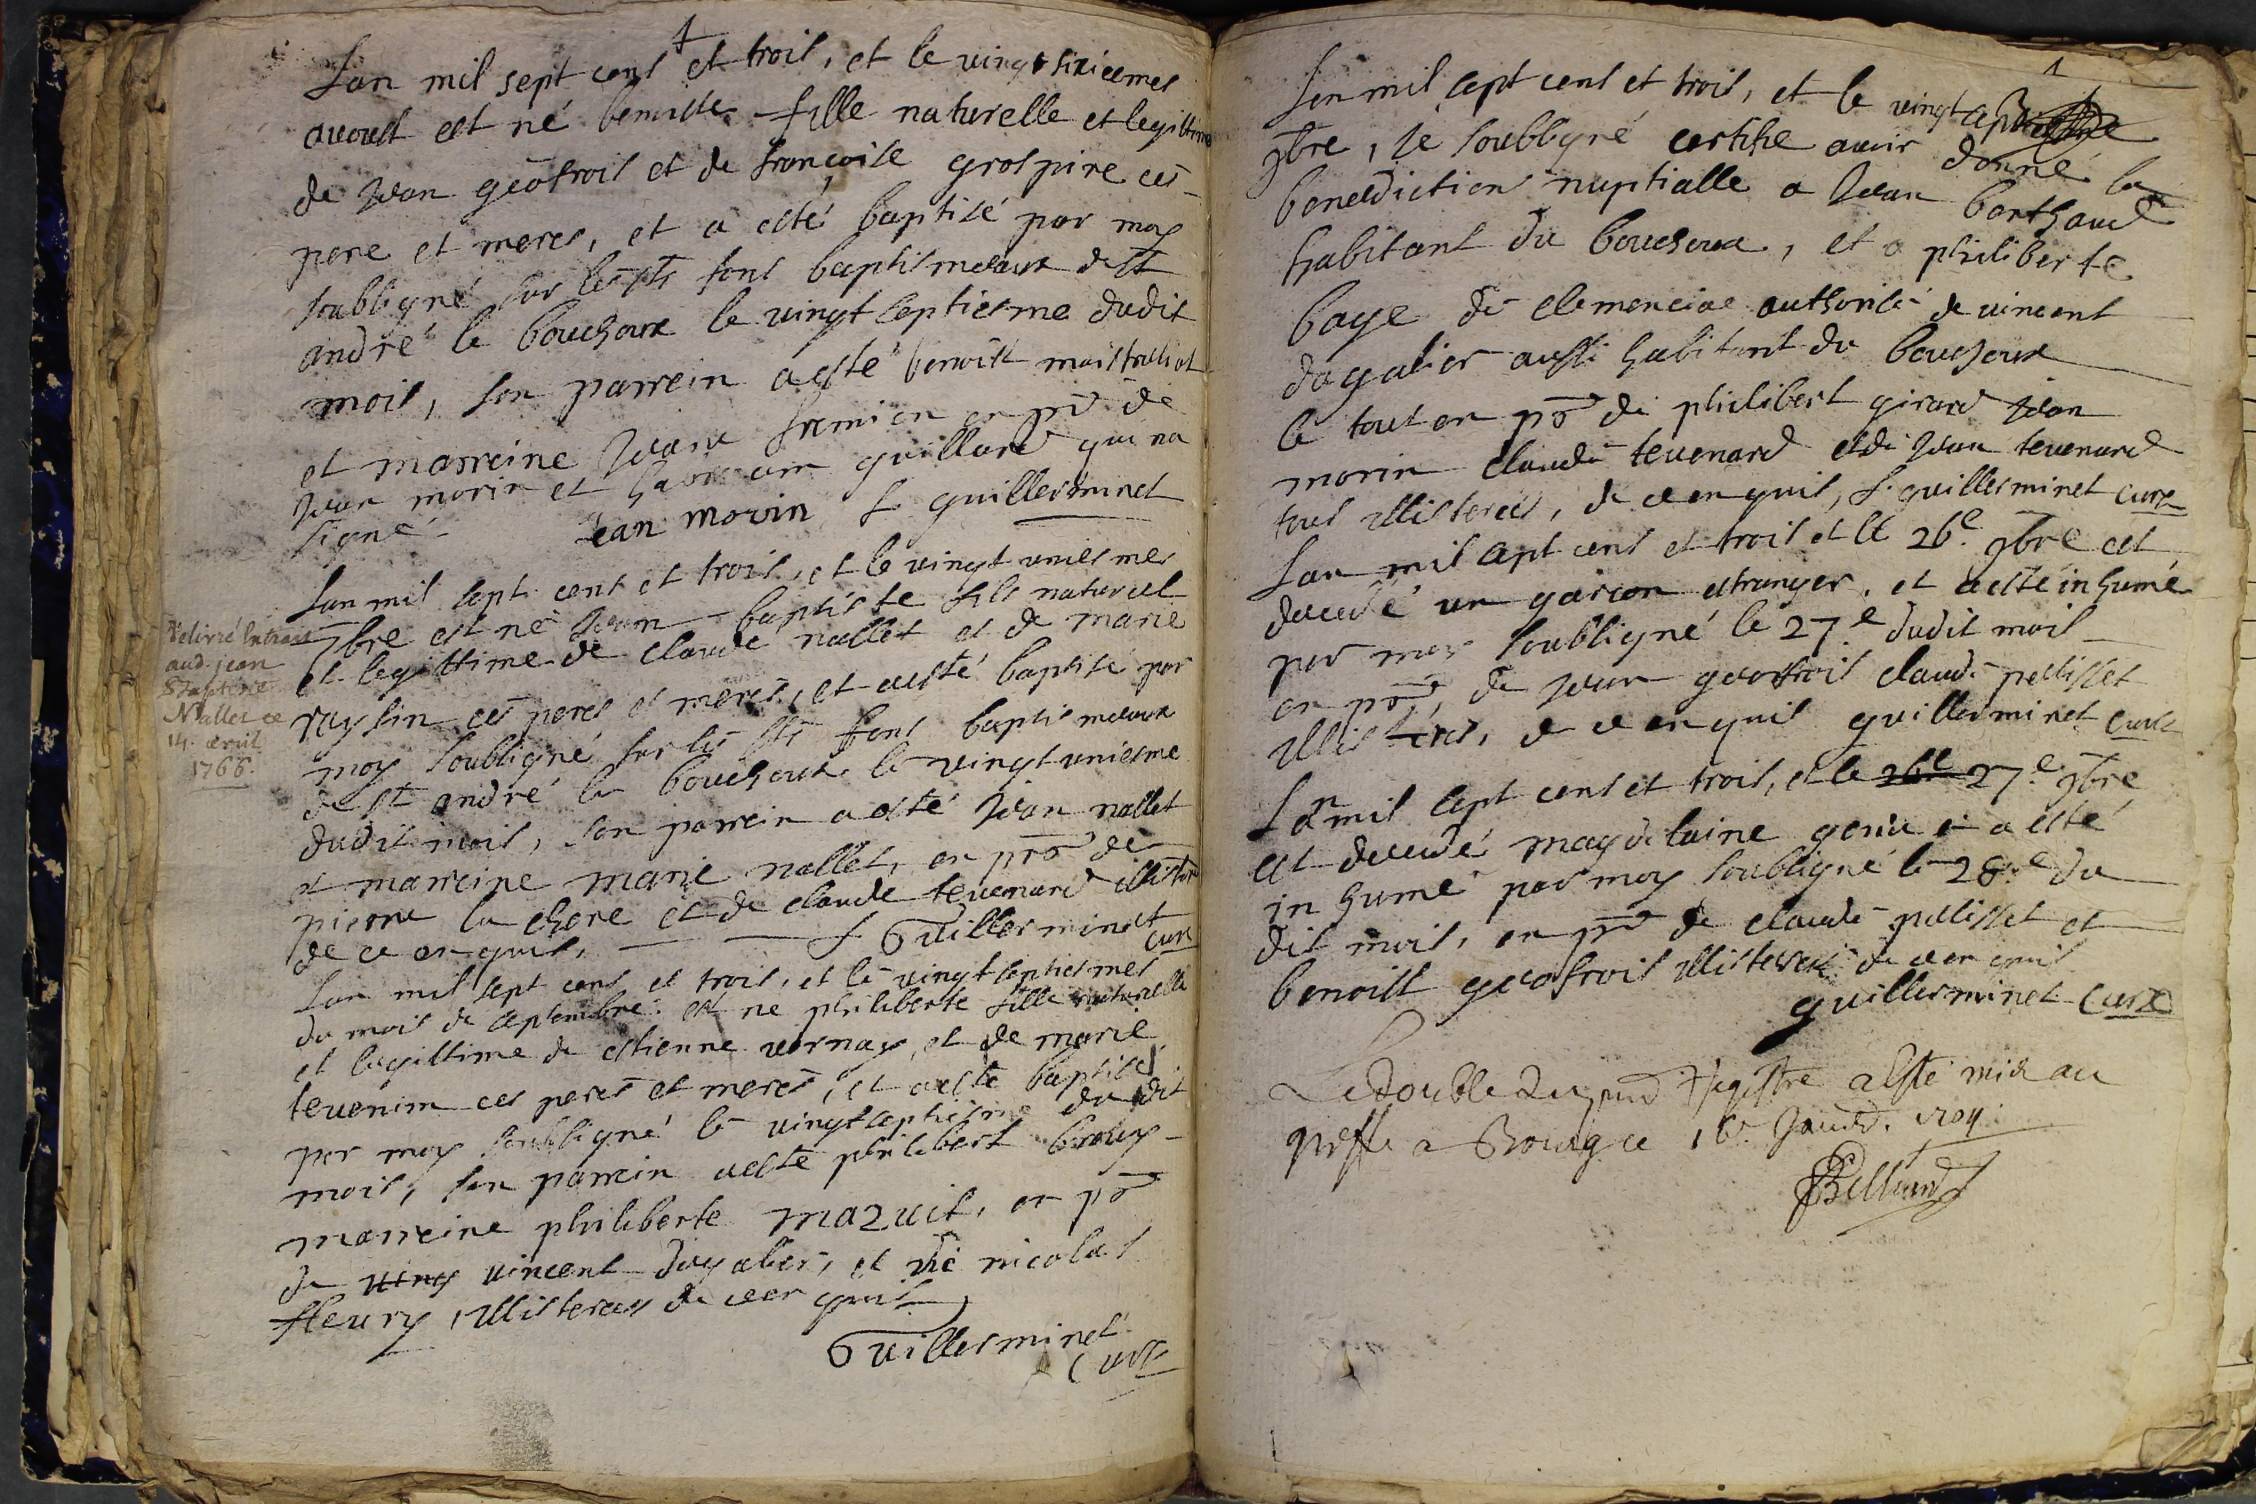 Lan mil sept cens et trois, et le vingt sixiesmes
avoust est né benoiste fille naturelle et legittime
de Jean geofrois et de francoise grospire ces
pere et meres, et a esté baptisé par moy
soubsigné sur les sts fons baptismeaux de st
andré le bouchoux le vingt septiesme dudit
mois, son parrein a esté benoist
et marreine Jeane fremion en pnce de
Jean morin et guillard qui na
signé. Jean morin L guillerminet
Lan mil sept cens et trois, et le vingt uniesmes
7bre est né Jean baptiste fils naturel
et legittime de claude nallet et de marie
raysin ces peres et meres, et a esté baptisé par
moy soubsigné sur les sts fons baptismeaux
de st andré le bouchoux le vingt uniesme
dudit mois, son parrein a esté Jean nallet
et marreine marie nallet, en pnce de
pierre la chere et de claude tevenard illister
de ce enquis, L Guillerminet
curé
Delivré Extrait
aud. jean
Baptiste
Nallet ce
14. avril
1766.
Lan mil sept cens et trois, et le vingt septiesmes
du mois de septembre est ne philiberte fille naturelle
et legittime de estienne vernay, et de marie
tevenin ces peres et meres, et a esté baptisé
par moy soubsigné le vingt septiesme du dit
mois, son parrein a esté philibert
marreine philiberte mazuit, en pnce
de ving vincent dagalier, et de nicolas
fleury, illisteres de ce enquis
Guillerminet
Curé
1
Lan mil sept cens et trois, et le vingt sept
9bre, Je soubsigné certifie avoir donné la
benediction nuptialle a Jean borthaud
habitant du bouchoux, et a philiberte
baye de clemenciae authorisé de vincent
dagalier aussi habitant du bouchoux
le tout en pnce de philibert girard Jean
morin claude tevenard et de Jean tevenard
tous illisteres, de ce enquis, L. guillerminet curé
Lan mil sept cens et trois et le 26e 9bre est
decedé un garcon estranger, et a esté inhumé
par moy soubsigné le 27e dudit mois
en pnce, de Jean geofrois claude pellisset
illisteres, de ce enquis guillerminet curé
Lan mil sept cens et trois, et le 26e 27e 9bre
est decedé magdelaine et a esté
inhumé par moy soubsigné le 28e du
dit mois, en pnce de claude pellisset et
benoist geofrois illisteres de ce enquis
guillerminet Curé
Le double du pnt Registre a esté mis au
greffe a Bourg ce